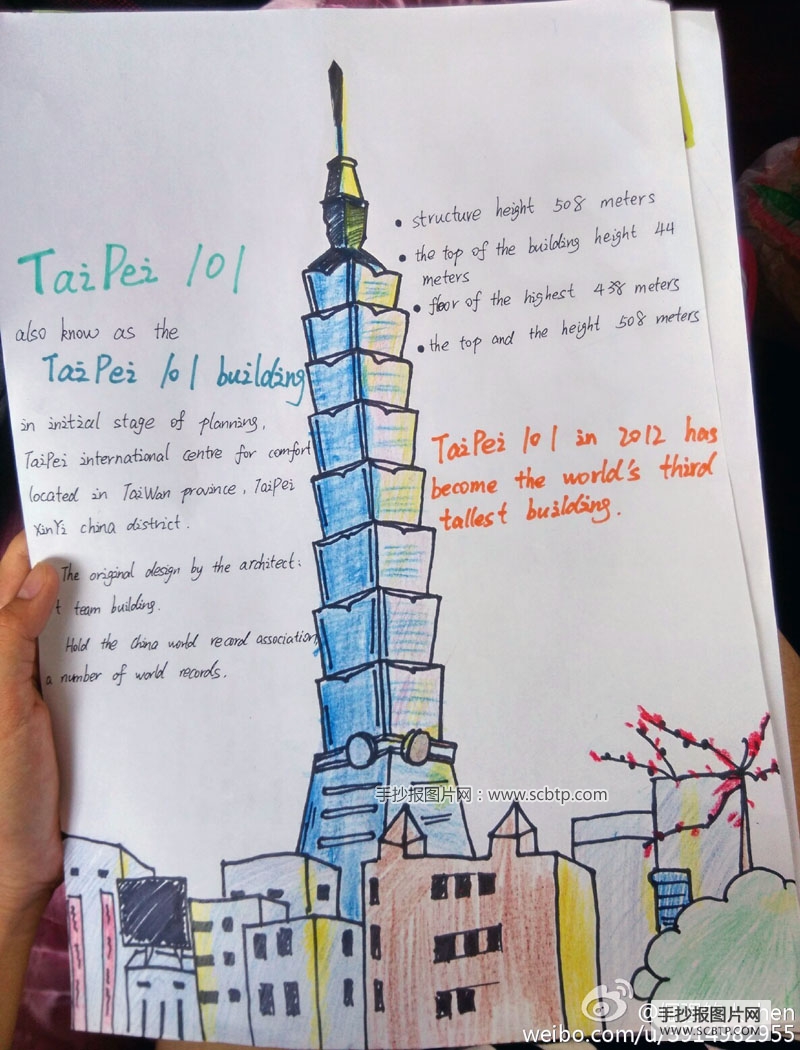 TaiPei 101
also know as the
TaiPei 101 building
in initial stage of planning,
TaiPei international centre for comfort
located in TaiWan province, TaiPei
XinYi china district.
The original design by the architect:
t team building.
Hold the China world record association
a number of world records.
• structure height 508 meters
• the top of the building height 44
meters
• floor of the highest 438 meters
• the top and the height 508 meters
TaiPei 101 in 2012 has
become the world's third
tallest building.
手抄报图片网：www.scbtp.com
手抄报图片网
WWW.SCBTP.COM
weibo.com/u/3914982955